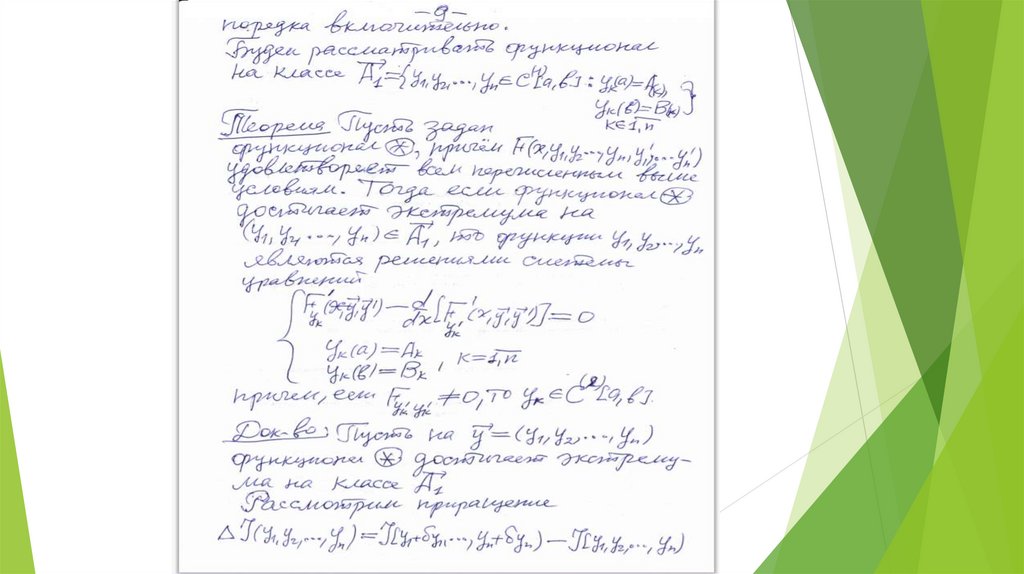 –9–
порядка включительно.
Будем рассматривать функционал
на классе A⃗₁={y₁,y₂,...,yₙ∈C⁽¹⁾[a,b]: yₖ(a)=A₍ₖ₎,
yₖ(b)=B₍ₖ₎}
k∈1,n
Теорема Пусть задан
функционал ⊛, причём F(x,y₁,y₂...,yₙ,y₁',...yₙ')
удовлетворяет всем перечисленным выше
условиям. Тогда если функционал ⊛
достигает экстремума на
(y₁,y₂,...,yₙ)∈A⃗₁, то функции y₁,y₂,...,yₙ
являются решениями системы
уравнений
{ F'_yₖ(x,y⃗,y⃗')–d/dx[F'_yₖ'(x,y⃗,y⃗')]=0
yₖ(a)=Aₖ
yₖ(b)=Bₖ, k=1,n
причём, если F_yₖ'yₖ'≠0, то yₖ∈C⁽²⁾[a,b].
Док-во: Пусть на y⃗=(y₁,y₂,...,yₙ)
функционал ⊛ достигает экстрему-
ма на классе A⃗₁
Рассмотрим приращение
ΔJ(y₁,y₂,...,yₙ)=J[y₁+δy₁,...,yₙ+δyₙ)–J[y₁,y₂,...,yₙ)